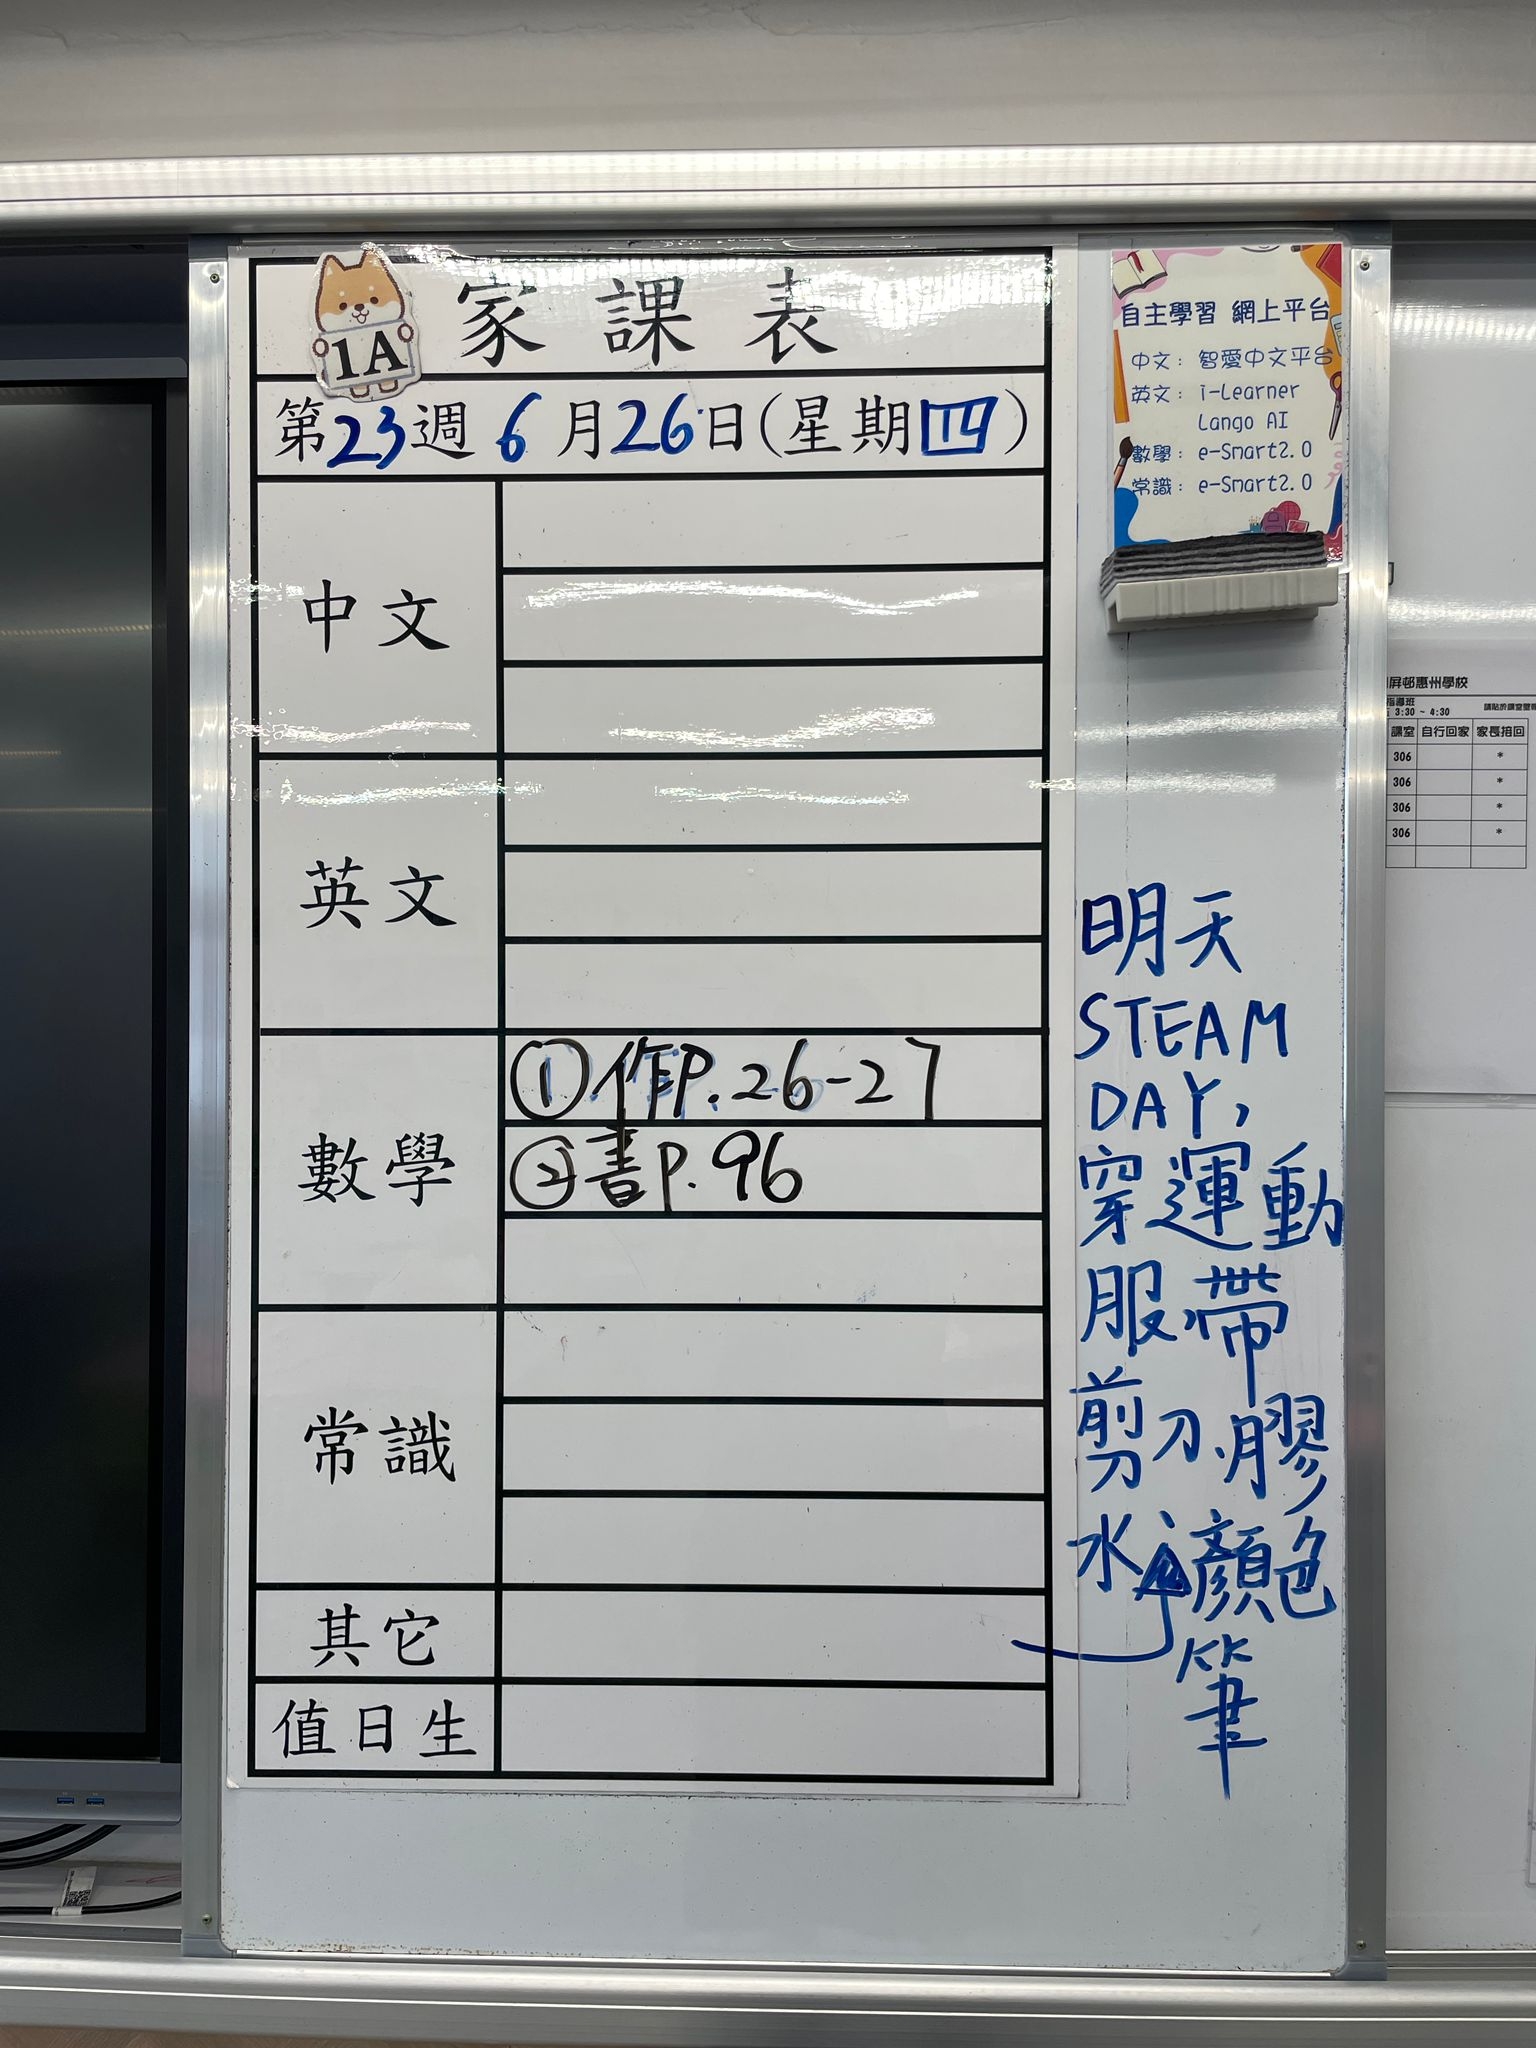 家課表
1A
第23週 6月26日(星期四)
中文
英文
數學
①作P.26-27
②書P.96
常識
其它
值日生
自主學習 網上平台
中文：智愛中文平台
英文：i-Learner
Lango AI
數學：e-Smart2.0
常識：e-Smart2.0
明天
STEAM
DAY,
穿運動
服,帶
剪刀、膠
水、顏色
筆
屏邨惠州學校
指導班
3:30 ~ 4:30
課室 自行回家 家長接回
306 *
306 *
306 *
306 *